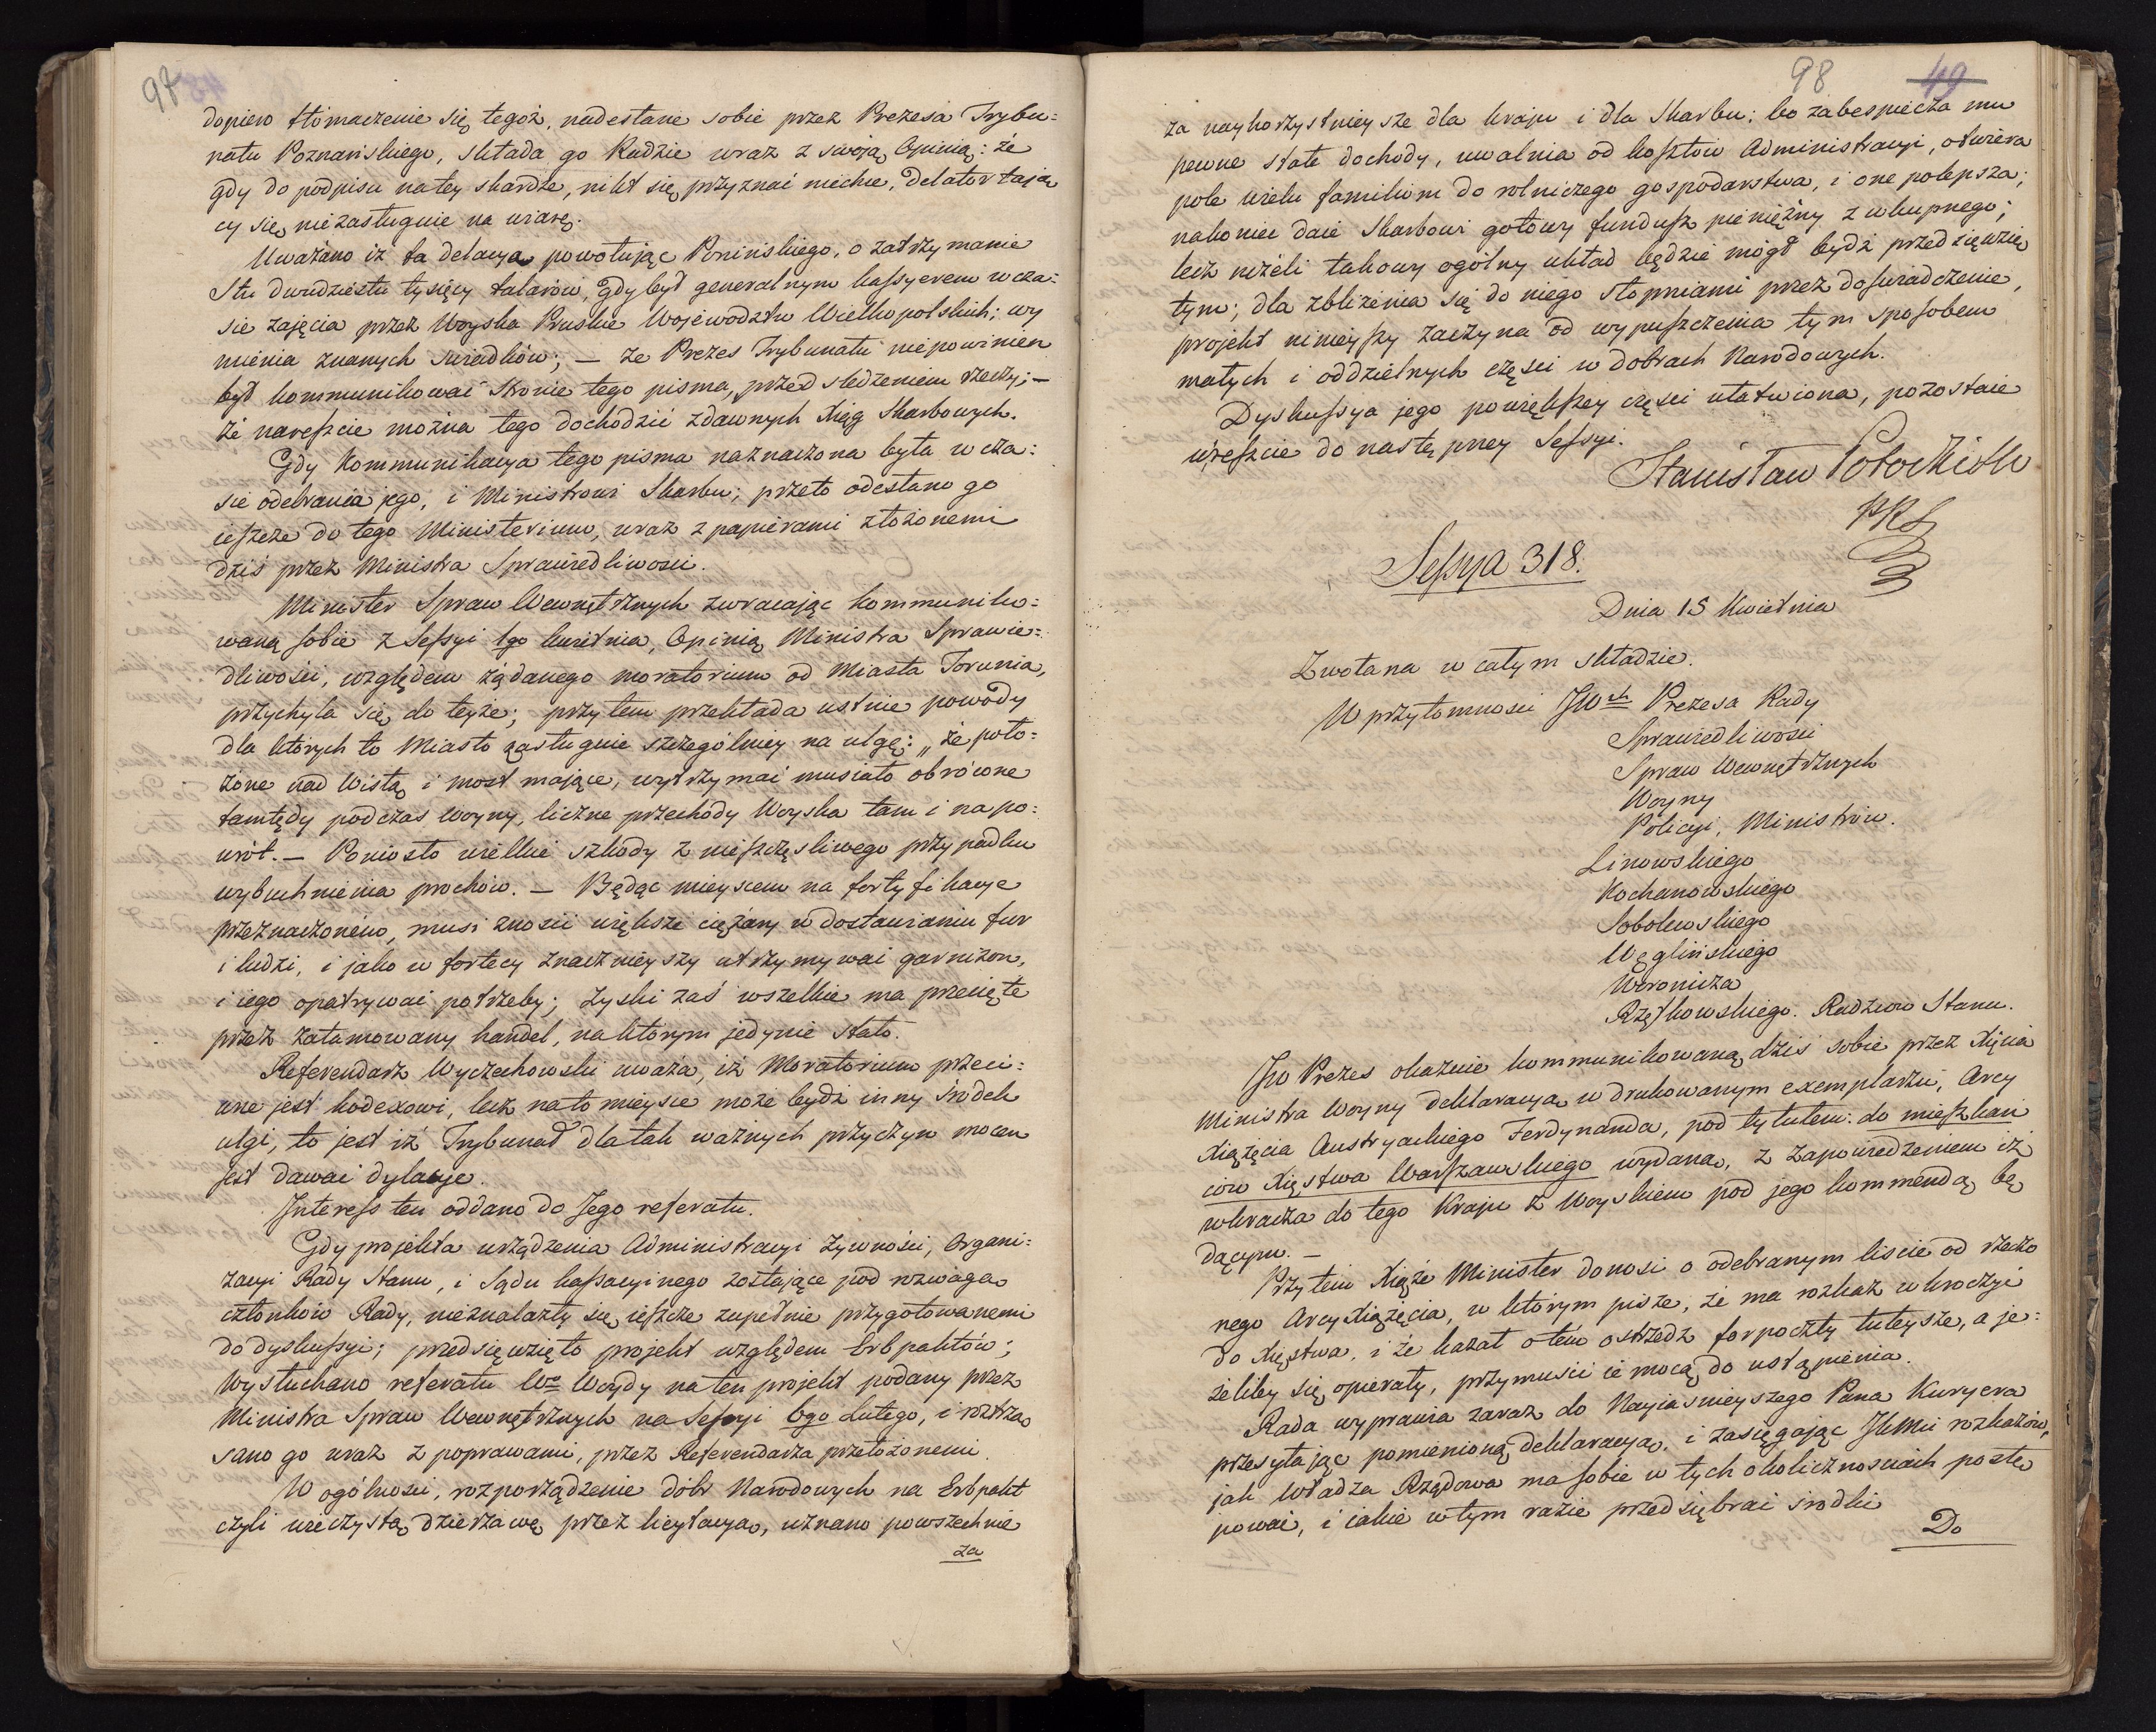 97
dopiero tłómaczenie się tegoż, nadesłane sobie przez Prezesa Trybu=
nału Poznańskiego, składa go Radzie wraz z swoją Opinią: że
gdy do podpisu na tey skardze, nikt się przyznać niechce, Delator taią
cy się niezasługuie na wiarę.
Uważano iż ta delacya powołując Ponińskiego, o zatrzymanie
Stu dwudziestu tysięcy talarów, gdy był generalnym kassyerem w cza=
sie zajęcia przez Woyska Pruskie Województw Wielkopolskich; wy
mienia znanych świadków; — że Prezes Trybunału niepowinien
był kommunikować stronie tego pisma, przed śledzeniem rzeczy; —
że nareszcie można tego dochodzić z dawnych Xiąg Skarbowych.
Gdy Kommunikacya tego pisma naznaczona była w cza=
sie odebrania jego, i Ministrowi Skarbu; przeto odesłano go
ieszcze do tego Ministerium, wraz z papierami złożonemi
dziś przez Ministra Sprawiedliwości.
Minister Spraw Wewnętrznych zwracając kommuniko=
waną sobie z Sessyi 1go kwietnia, Opinią Ministra Sprawie=
dliwości, względem żądanego moratorium od Miasta Torunia,
przychyla się do teyże; przytem przekłada ustnie powody
dla których to Miasto zasługuie szczególniey na ulgę: „że poło=
żone nad Wisłą i most mające, wytrzymać musiało obrócone
tamtędy podczas woyny, liczne przechody Woyska tam i napo=
wrót. — Poniosło wielkie szkody z nieszczęśliwego przypadku
wybuchnienia prochów. — Będąc mieyscem na fortyfikacye
przeznaczonem, musi znosić większe ciężary w dostawianiu fur
i ludzi, i jako w fortecy znacznieyszy utrzymywać garnizon,
i iego opatrywać potrzeby; zyski zaś wszelkie ma przecięte
przez zatamowany handel, na którym jedynie stało.
Referendarz Wyczechowski uważa, iż Moratorium przeci=
wne jest kodexowi, lecz na to mieysce może bydź inny środek
ulgi, to jest iż Trybunał dla tak ważnych przyczyn mocen
jest dawać dylacye.
Interess ten oddano do Jego referatu.
Gdy projekta urządzenia Administracyi żywności, Organi=
zacyi Rady Stanu, i Sądu kassacyinego zostające pod rozwagą
członków Rady, nieznalazły się ieszcze zupełnie przygotowanemi
do dyskussyi; przedsięwzięto projekt względem Erbpaktów;
Wysłuchano referatu Wo Woydy na ten projekt podany przez
Ministra Spraw Wewnętrznych na Sessyi 6go Lutego, i roztrzą
sano go wraz z poprawami, przez Referendarza przełożonemi.
W ogólności, rozporządzenie dóbr Narodowych na Erbpakt
czyli wieczystą dzierżawę przez licytacyą, uznano powszechnie
za
98
49
za naykorzystnieysze dla kraju i dla Skarbu; bo zabespiecza mu
pewne stałe dochody, uwalnia od kosztów Administracyi, otwiera
pole wielu familiom do rolniczego gospodarstwa, i one polepsza;
nakoniec daie Skarbowi gotowy fundusz pieniężny z wkupnego;
lecz niżeli takowy ogólny układ będzie mógł bydź przedsięwzię
tym; dla zbliżenia się do niego stopniami przez doświadczenie,
projekt ninieyszy zaczyna od wypuszczenia tym sposobem
małych i oddzielnych części w dobrach Narodowych.
Dyskussya jego powiększey części ułatwiona, pozostaie
wreszcie do następney Sessyi.
Stanisław Potocki
PRS
Sessya 318.
Dnia 15 Kwietnia
Zwołana w całym składzie.
W przytomności JWch Prezesa Rady
Sprawiedliwości
Spraw Wewnętrznych
Woyny
Policyi, Ministrów.
Linowskiego
Kochanowskiego
Sobolewskiego
Węglińskiego
Woronicza
Rzętkowskiego. Radzców Stanu.
JW Prezes okazuie kommunikowaną dziś sobie przez Xięcia
Ministra Woyny deklaracyą w drukowanym exemplarzu, Arcy
Xiążęcia Austryackiego Ferdynanda, pod tytułem: do mieszkań
ców Xięstwa Warszawskiego wydaną, z zapowiedzeniem iż
wkracza do tego Kraju z Woyskiem pod jego kommendą bę
dącym. —
Przytem Xiąże Minister donosi o odebranym liście od rzeczo
nego ArcyXiążęcia, w którym pisze, że ma rozkaz wkroczyć
do Xięstwa, i że kazał o tem ostrzedz forpoczty tuteysze, a je=
żeliby się opierały, przymusić ie mocą do ustąpienia.
Rada wyprawia zaraz do Nayiaśnieyszego Pana Kuryera
przesyłając pomienioną deklaracyą, i zasięgając JKMci rozkazów,
jak Władza Rządowa ma sobie w tych okolicznościach postę
pować, i iakie w tym razie przedsiębrać środki
Do